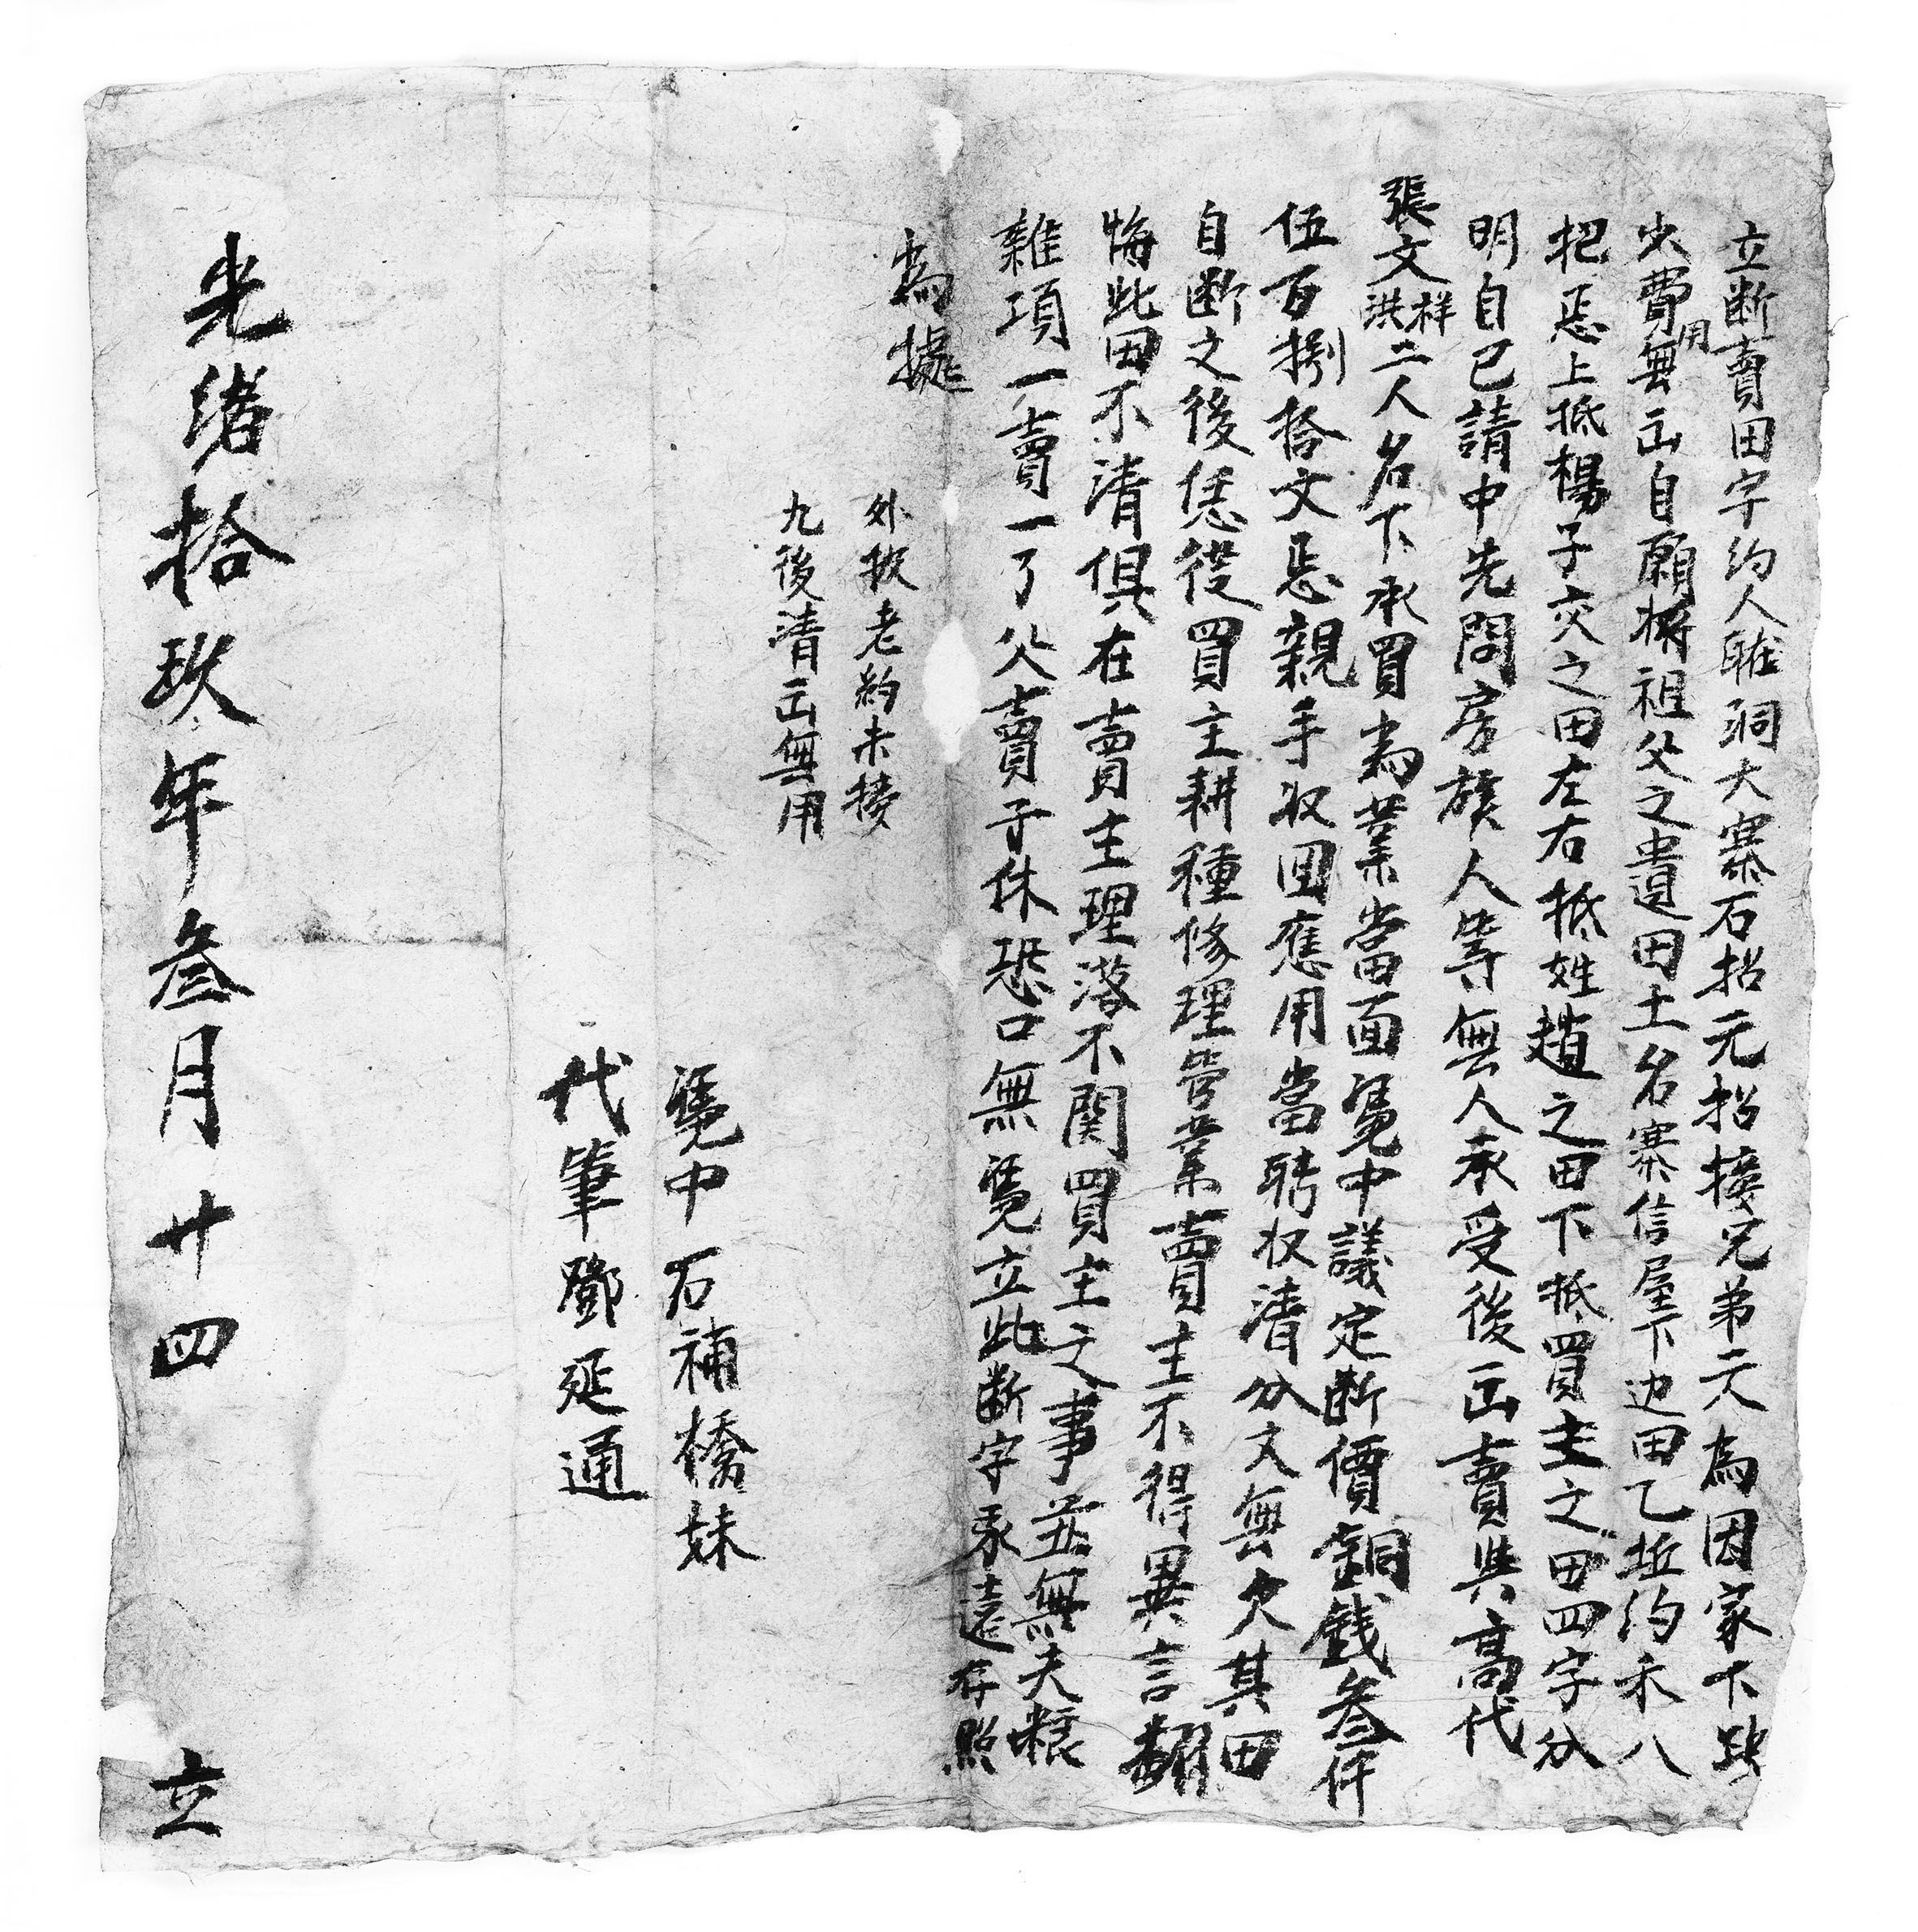 立断賣田字約人聀洞大寨石招元招接兄弟二人為因家下缺
少費用無出自願將祖父之遺田土名寨信屋下边田乙坵約禾八
把忢上抵楊子交之田左右抵姓趙之田下抵買主之田四字分
明自己請中先問房族人等無人承受後出賣與高代
張文祥洪二人名下承買為業當面凴中議定断價銅錢叁仟
伍百捌拾文忢親手収回應用當聘収清分文無欠其田
自断之後恁從買主耕種修理管業賣主不得異言翻
悔此田不清俱在賣主理落不関買主之事並無夫粮
雜項一賣一了父賣子休恐口無凴立此断字永遠存照
為據
外批老約未接
九後清出無用
凴中石補橋妹
代筆鄧延通
光緒拾玖年叁月廿四 立